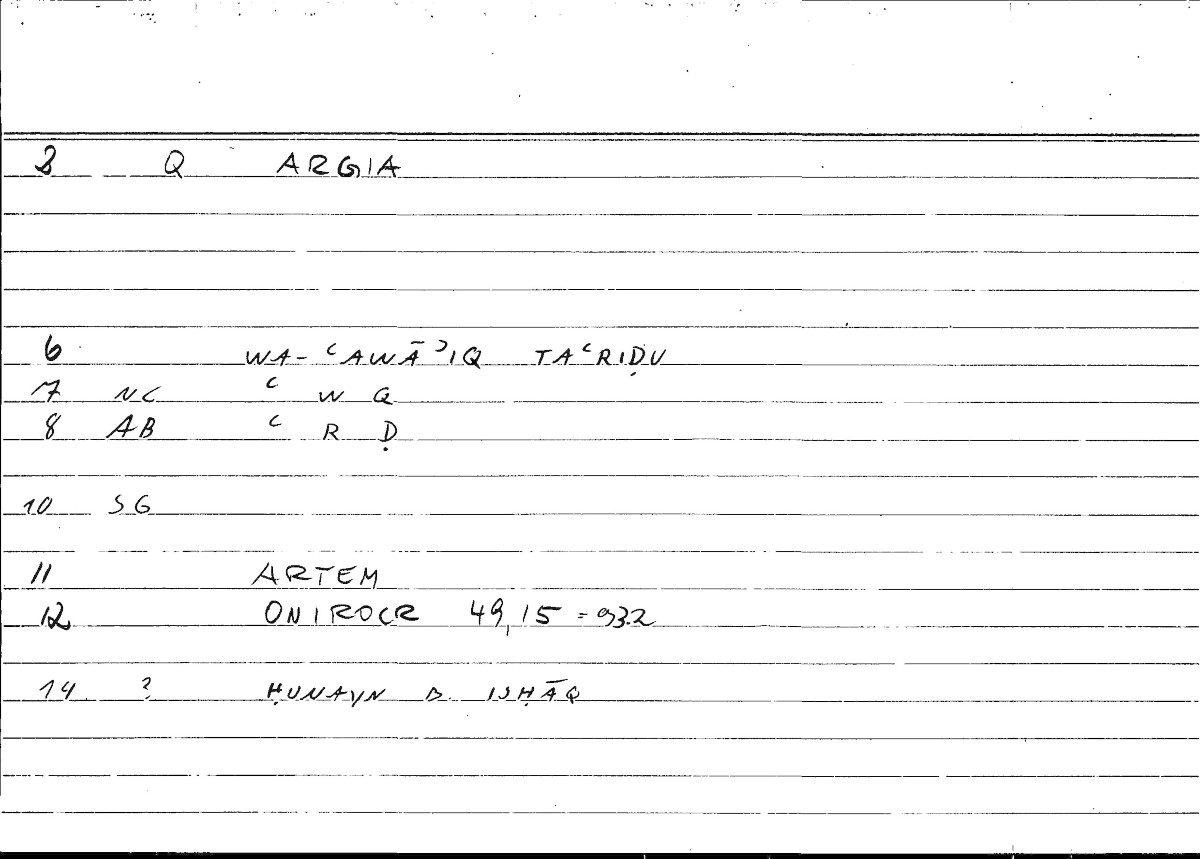 3 Q ARGIA
6 WA-ʿAWĀʾIQ TAʿRIḌU
7 NC ʿ W Q
8 AB ʿ R Ḍ
10 SG
11 ARTEM
12 ONIROCR 49,15 = 93.2
14 ? ḤUNAYN B. ISḤĀQ